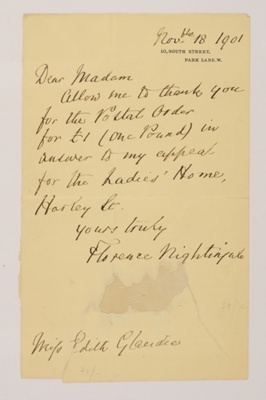 Novbr 18 1901
10, SOUTH STREET,
PARK LANE. W.
Dear Madam
Allow me to thank you
for the Postal Order
for £1 (one Pound) in
answer to my appeal
for the Ladies' Home,
Harley St.
Yours truly
Florence Nightingale
Miss Edith